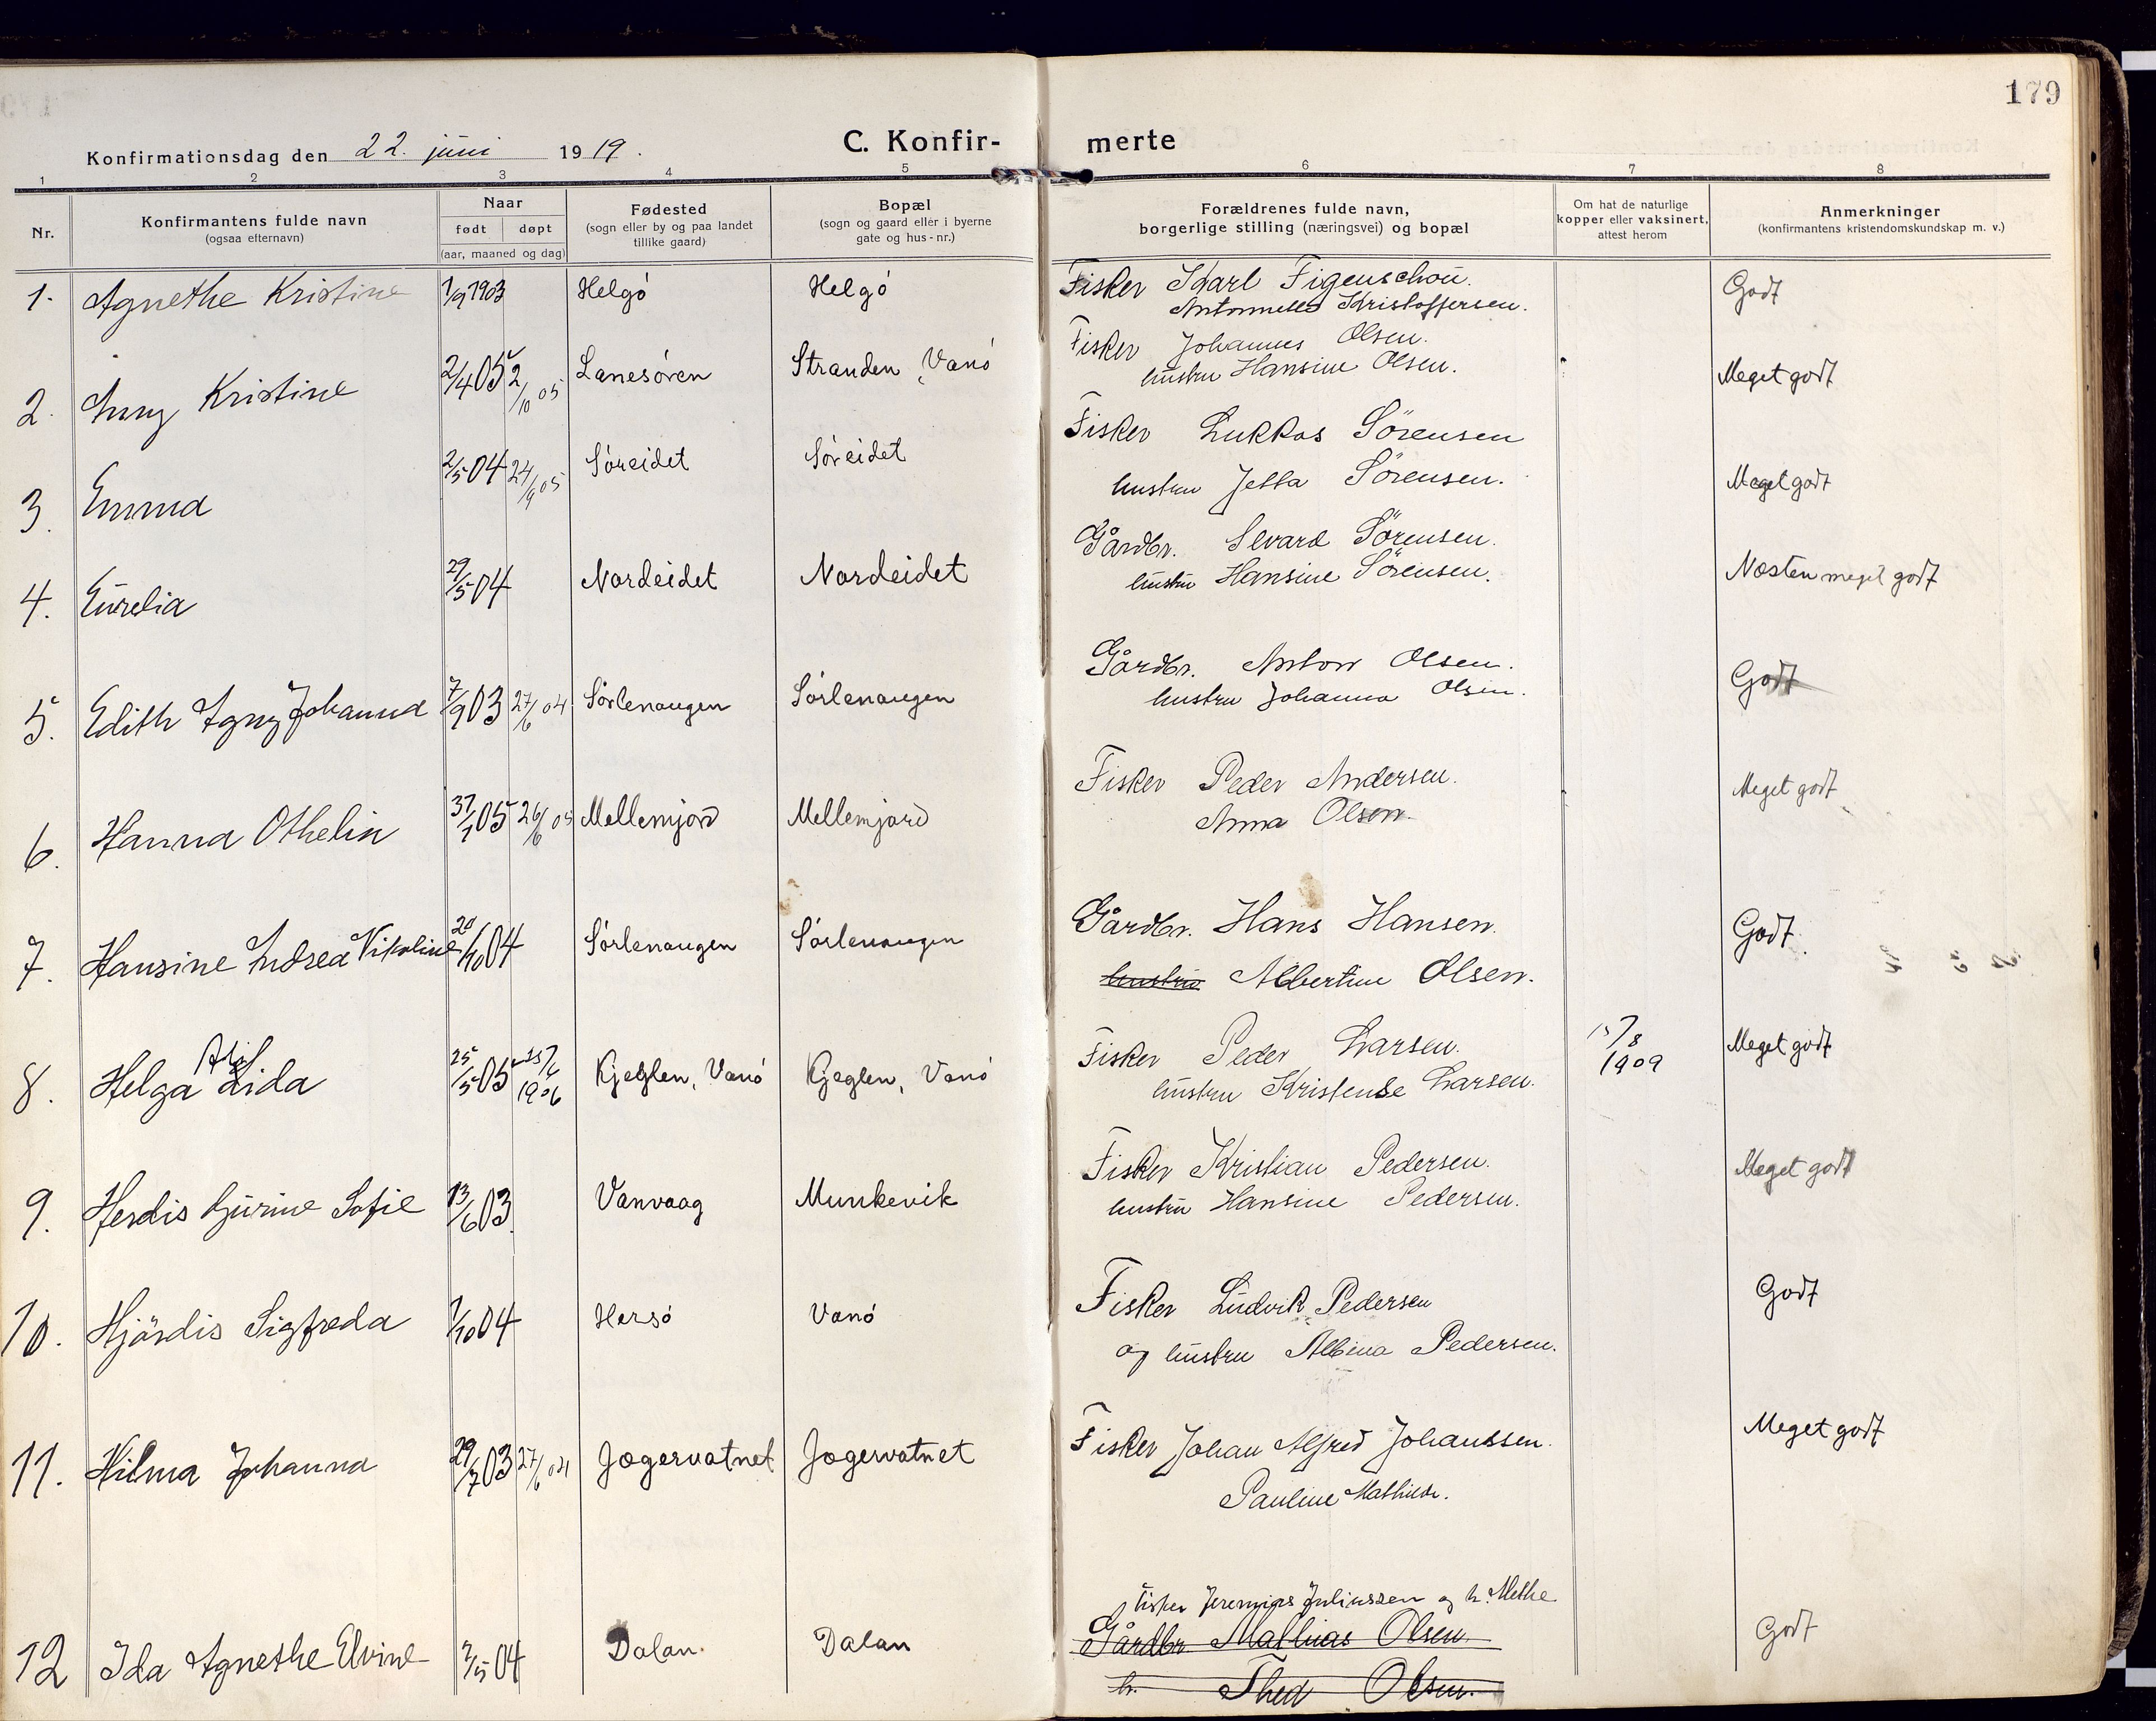 179
Konfirmationsdag den 22. juni 1919.
C. Konfir-
merte
1 2 3 4 5 6 7 8
Nr.
Konfirmantens fulde navn
(ogsaa efternavn)
Naar
født døpt
(aar, maaned og dag)
Fødested
(sogn eller by og paa landet
tillike gaard)
Bopæl
(sogn og gaard eller i byerne
gate og hus-nr.)
Forældrenes fulde navn,
borgerlige stilling (næringsvei) og bopæl
Om hat de naturlige
kopper eller vaksinert,
attest herom
Anmerkninger
(konfirmantens kristendomskundskap m. v.)
1. Agnethe Kristine 1/9 1903 Helgó Helgó Fisker Karl Figenschou. Godt
Kristoffersen.
2. Kristine 2/4 05 2/10 05 Lanesóren Stranden, Vanó Fisker Johannes Olsen. Meget godt
hustru Hansine Olsen.
3. Emma 2/5 04 24/9 05 Sóreidet Sóreidet Fisker Lukkas Sörensen Meget godt
hustru Jetta Sörensen.
4. Eurelia 29/5 04 Nordeidet Nordeidet Gårdbr. Sevard Sörensen. Næsten meget godt
hustru Hansine Sörensen.
5. Edith Agny Johanna 7/9 03 27/6 04 Sórlenangen Sórlenangen Gårdbr. Anton Olsen. Godt
hustru Johanna Olsen.
6. Hanna Othelin 31/1 05 26/6 05 Mellemjord Mellemjord Fisker Peder Andersen. Meget godt
Anna Olsen.
7. Hansine Andrea Nikoline 20/10 04 Sórlenangen Sórlenangen Gårdbr. Hans Hansen. Godt.
hustru Albertine Olsen.
8. Helga Lida 25/5 05 1906 Kjeglen, Vanó Kjeglen, Vanó Fisker Peder Larsen. 15/8 1909 Meget godt
hustru Kristense Larsen.
9. Herdis Gurine Sofie 13/6 03 Vanvaag Munkevik Fisker Kristian Pedersen. Meget godt
hustru Hansine Pedersen.
10. Hjördis Sigfreda 1/10 04 Hersó Vanó Fisker Ludvik Pedersen Godt
og hustru Albina Pedersen.
11. Hilma Johanna 29/7 03 27/6 04 Jægervatnet Jægervatnet Fisker Johan Alfred Johanssen. Meget godt
Pauline Mathilde.
Fisker Jeremias Juliussen og h. Methe
12 Ida Agnethe Elvine 3/5 04 Dalan. Dalan Gårdbr Mathias Olsen. Godt
h. Thea Olsen.